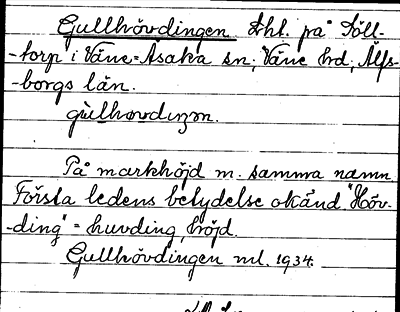 Gullhövdingen tht. på Söll-
-torp i Väne-Åsaka sn, Väne hd, Älfs-
-borgs län.
gu̇lhœvdıŋən.
På markhöjd m. samma namn
Första ledens betydelse okänd "Höv-
-ding" = huvding, höjd.
Gullhövdingen ml. 1934.